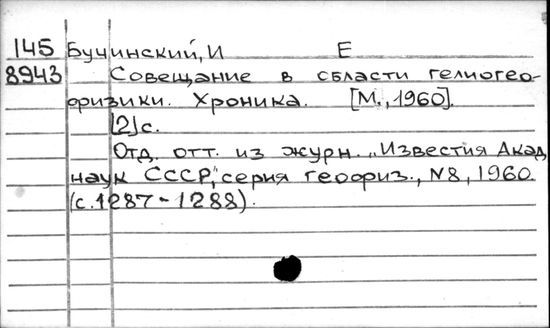 145 Бучинский, И Е
8943 Совещание в области гелиогео-
физики. Хроника. [М., 1960].
[2] с.
Отд. отт. из журн. „Известия Акад.
наук СССР", серия геофиз., N8, 1960.
(с. 1287-1288).